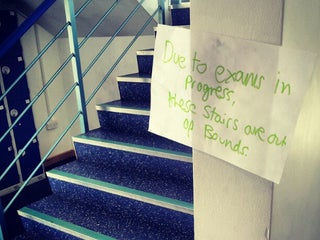 Due to exams in
Progress,
these Stairs are out
of Bounds.